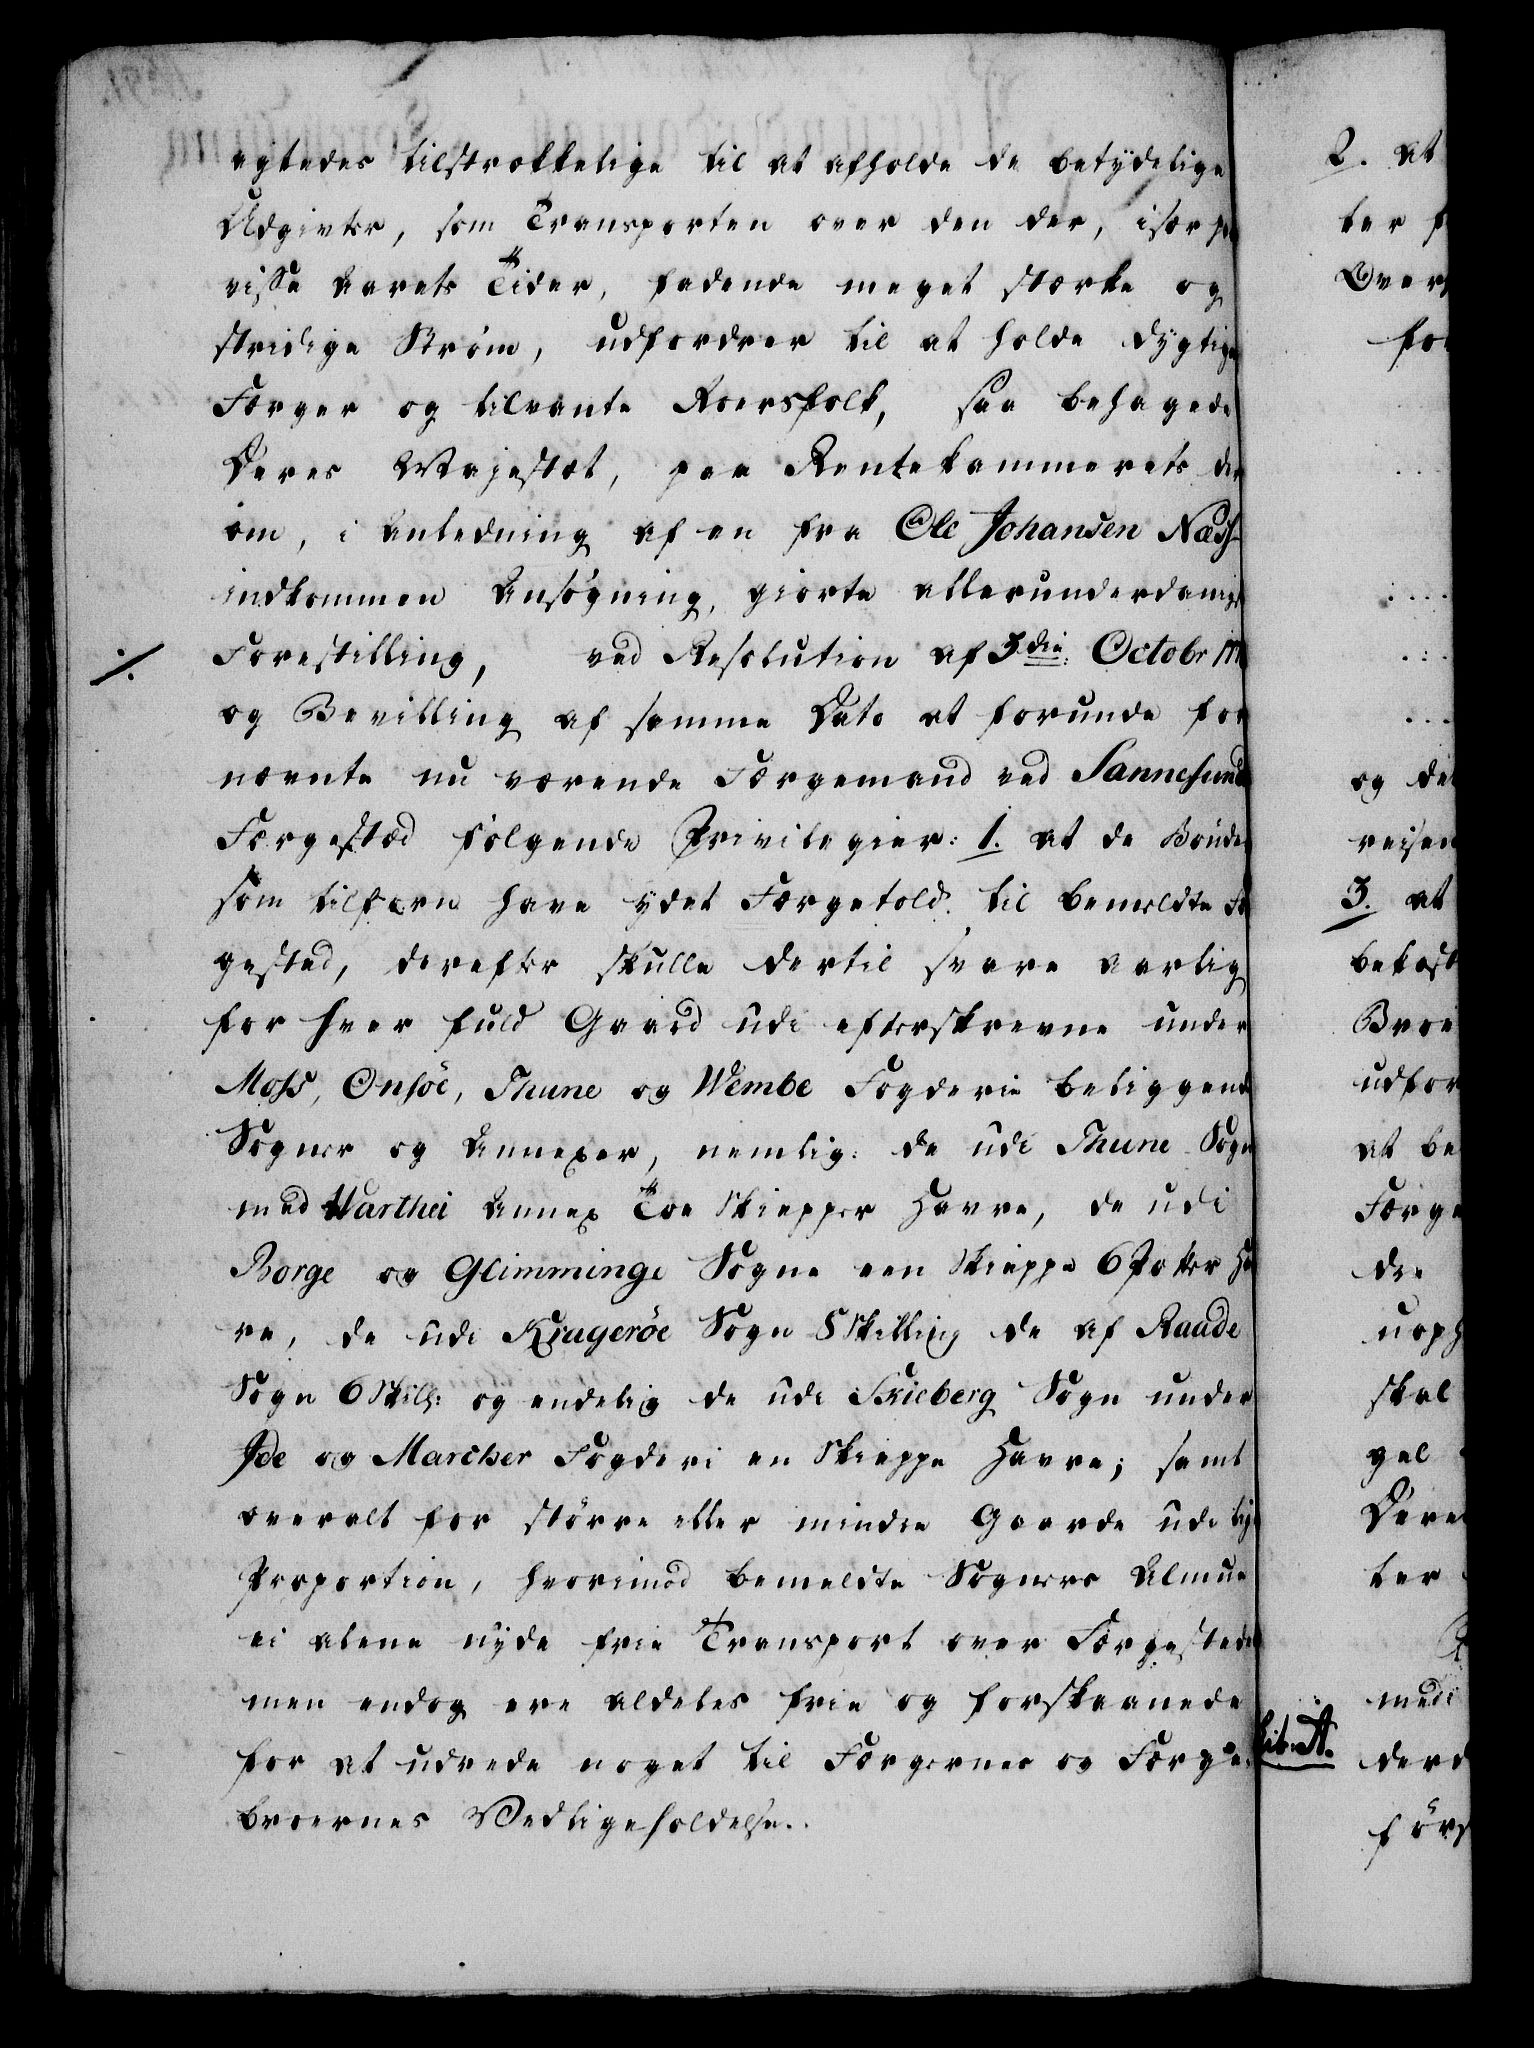 agtedes tilstrækkelige til at afholde de betydelige
Udgivter, som Transporten over den der, især paa
visse Aarets Tider, fadende meget stærke og
stridige Strøm, udfordrer til at holde dygtige
Færger og tilvante Roersfolk, saa behagede
Deres Majestæt, paa Rentekammerets der
om, i Anledning af en fra Ole Johansen Næss
indkommen Ansøgning, giorte allerunderdanigst
Forestilling, ved Resolution af 3die Octobr
og Bevilling af samme Dato at forunde for
nævnte nu værende Færgemand ved Sannesunds
Færgestæd følgende Privilegier: 1. at de Bønder
som tilforn have ydet Færgetold til bemeldte Fær
gestad, derefter skulle dertil svare aarlig
for hver fuld Gaard udi efterskrevne under
Moss, Onsöe, Thune og Wembe Fogderie beliggende
Sogner og Annexer, nemlig: de udi Thune Sogn
med Varthei Annex Toe Skiepper Havre, de udi
Borge og Glimminge Sogne een Skieppe 6 Potter Hav
re, de udi Kragerøe Sogn 8 Skilling de af Raade
Sogn 6 Skill: og endelig de udi Skieberg Sogn under
Ide og Marcker Fogderi en Skieppe Havre; samt
overalt for større eller mindre Gaarde udi lige
Proportion, hvorimod bemeldte Sogners Almue
ei alene nyde frie Transport over Færgestedet
men endog ere aldeles frie og forskaanede
for at udrede noget til Færgernes og Færge-
broernes Vedligeholdelse.
2. at
ter
Over
for
og de
reisen
3. at
bekost
Broe
udfor
at be
Færge
die
uoph
skal
gel
Dere
ter
med
Lit. A.
derd
førs